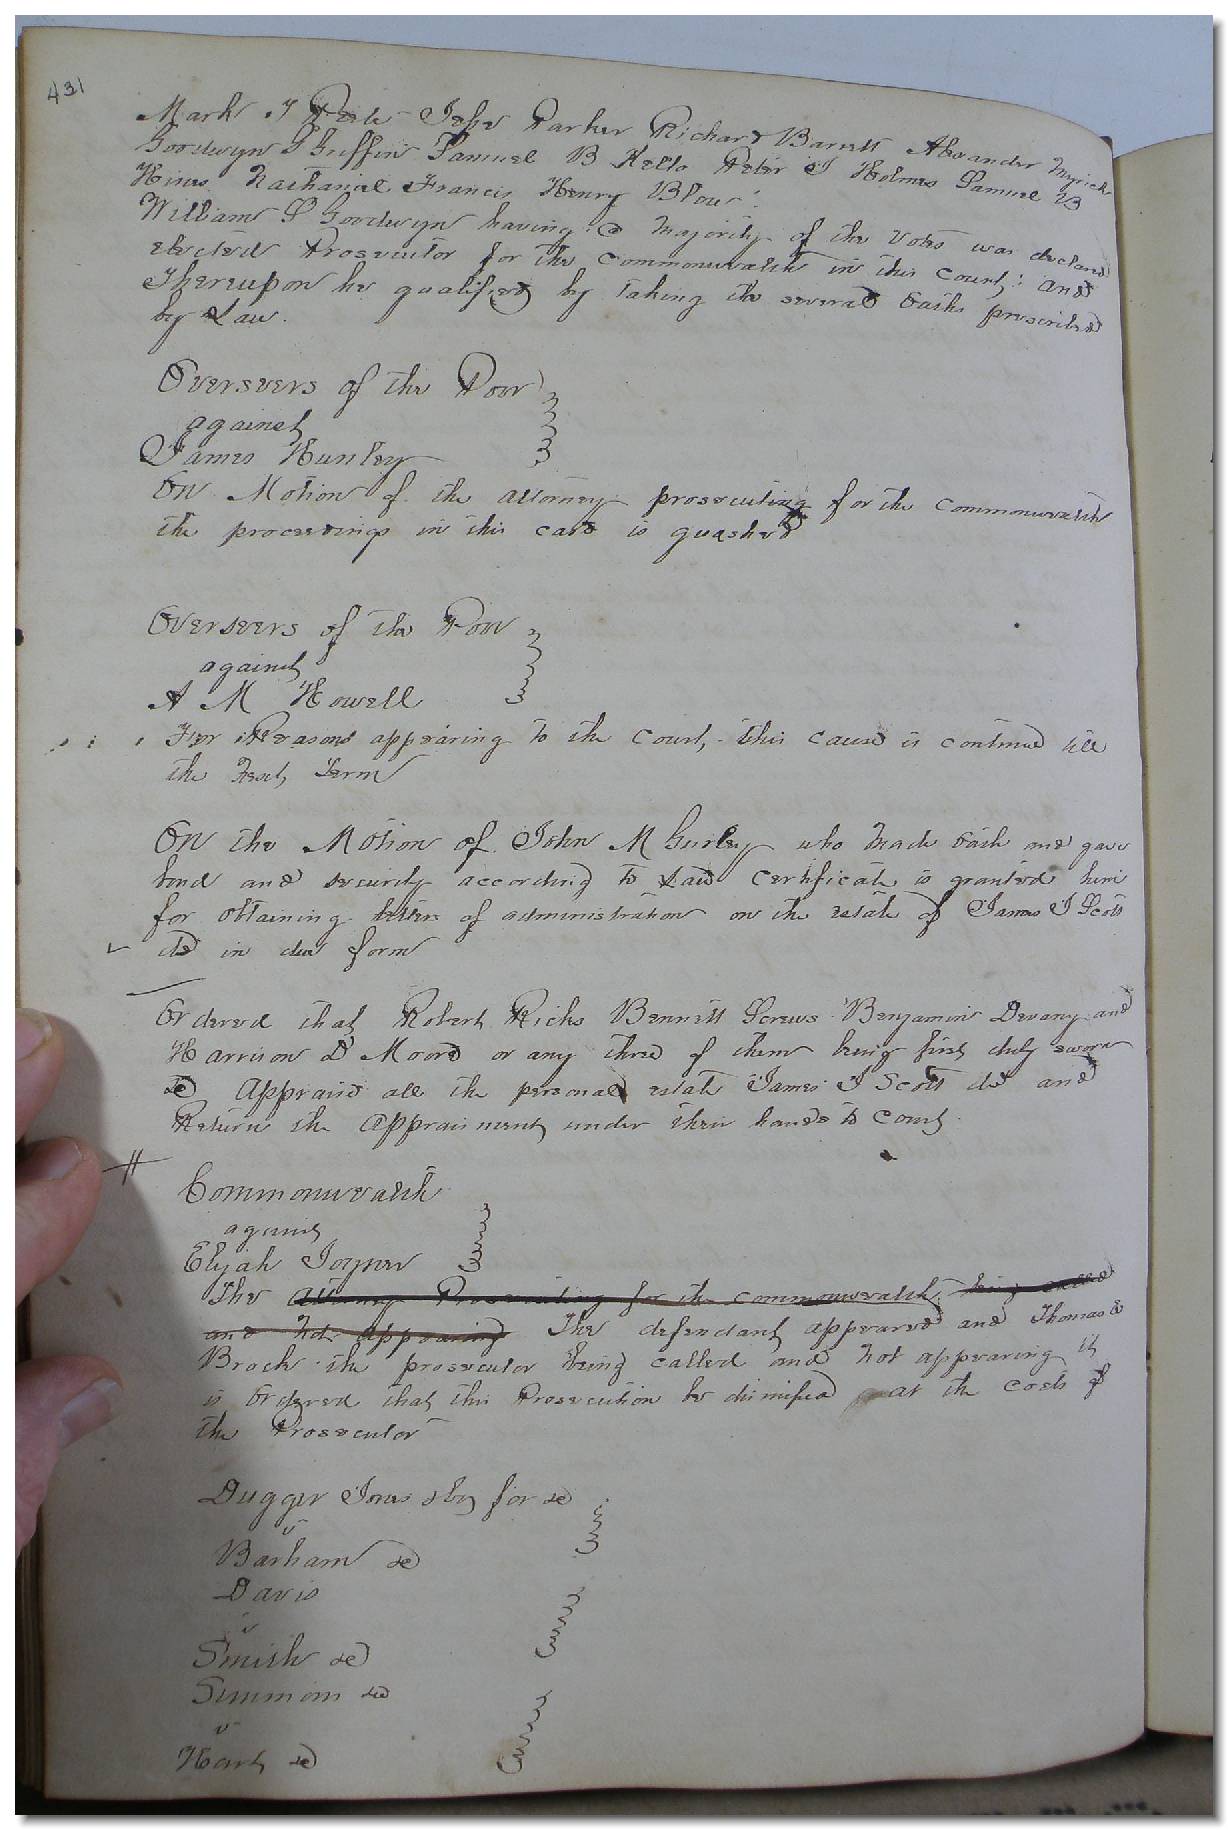 431
Mark T Jehu Parker Richard Barrett Alexander Myrick
Goodwyn S Griffin Samuel B Kello Peter J Holmes Samuel B
Hines Nathaniel Francis Henry Blow
William S Goodwyn having a Majority of the Votes was declared
elected Prosecutor for the Commonwealth in this Court; and
Thereupon he qualified by taking the several Oaths prescribed
by Law.
Overseers of the Poor
against
James Hunley
On Motion of the attorney prosecuting for the Commonwealth
the proceedings in this case is quashed
Overseers of the Poor
against
A M Howell
For Reasons appearing to the Court, this cause is continued till
the Next Term
On the Motion of John M Gurley who Made Oath and gave
bond and security according to Law Certificate is granted him
for obtaining letters of administration on the estate of James J Scott
dcd in due form
Ordered that Robert Ricks Bennett Screws Benjamin Devany and
Harrison D Moore or any three of them being first duly sworn
do Appraise all the personal estate James J Scott dcd and
Return the appraisment under their hands to Court
Commonwealth
against
Elijah Joyner
The attorney Prosecuting for the Commonwealth being called
and Not appearing The defendant appeared and Thomas
Brock the prosecutor being called and not appearing it
is Ordered that this Prosecution be dismissed at the costs of
the Prosecutor
Dugger Jones for &c
v
Barham &c
Davis
v
Smith &c
Simmons &c
v
Hart &c